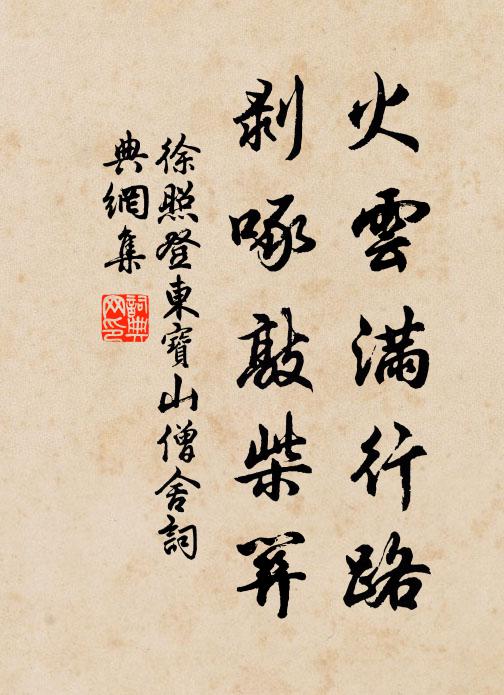 火雲滿行路
剝啄敲柴關
徐照登東寶山僧舍詞
典網集
詞典
网印